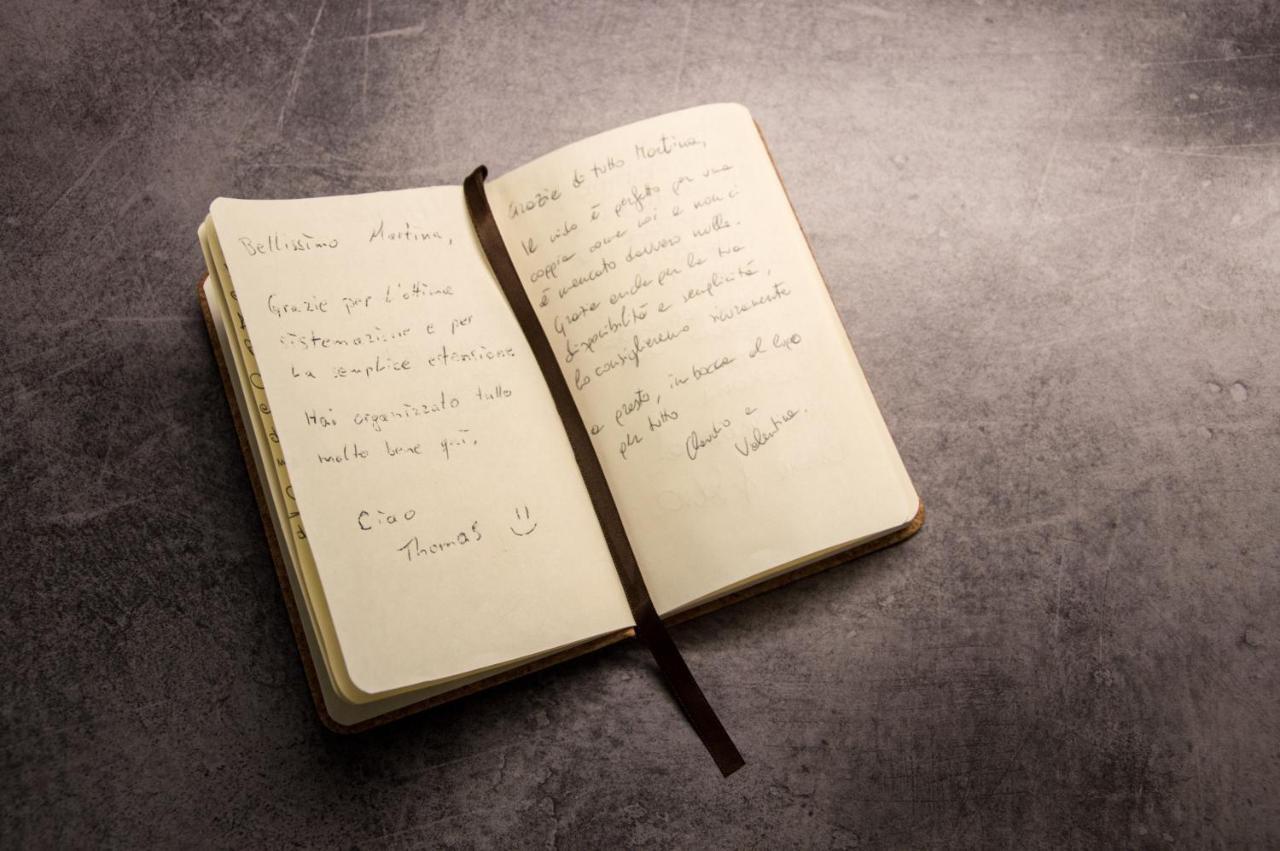 Bellissimo Martina,
Grazie per l'ottima
sistemazione e per
la semplice estensione
Hai organizzato tutto
molto bene qui,
Ciao
Thomas
Grazie di tutto Martina,
il nido è perfetto per una
coppia come noi e non ci
è mancato davvero nulla.
Grazie anche per la tua
disponibilità e semplicità,
lo consiglieremo sicuramente
a presto, in bocca al lupo
per tutto
e
Valentina.